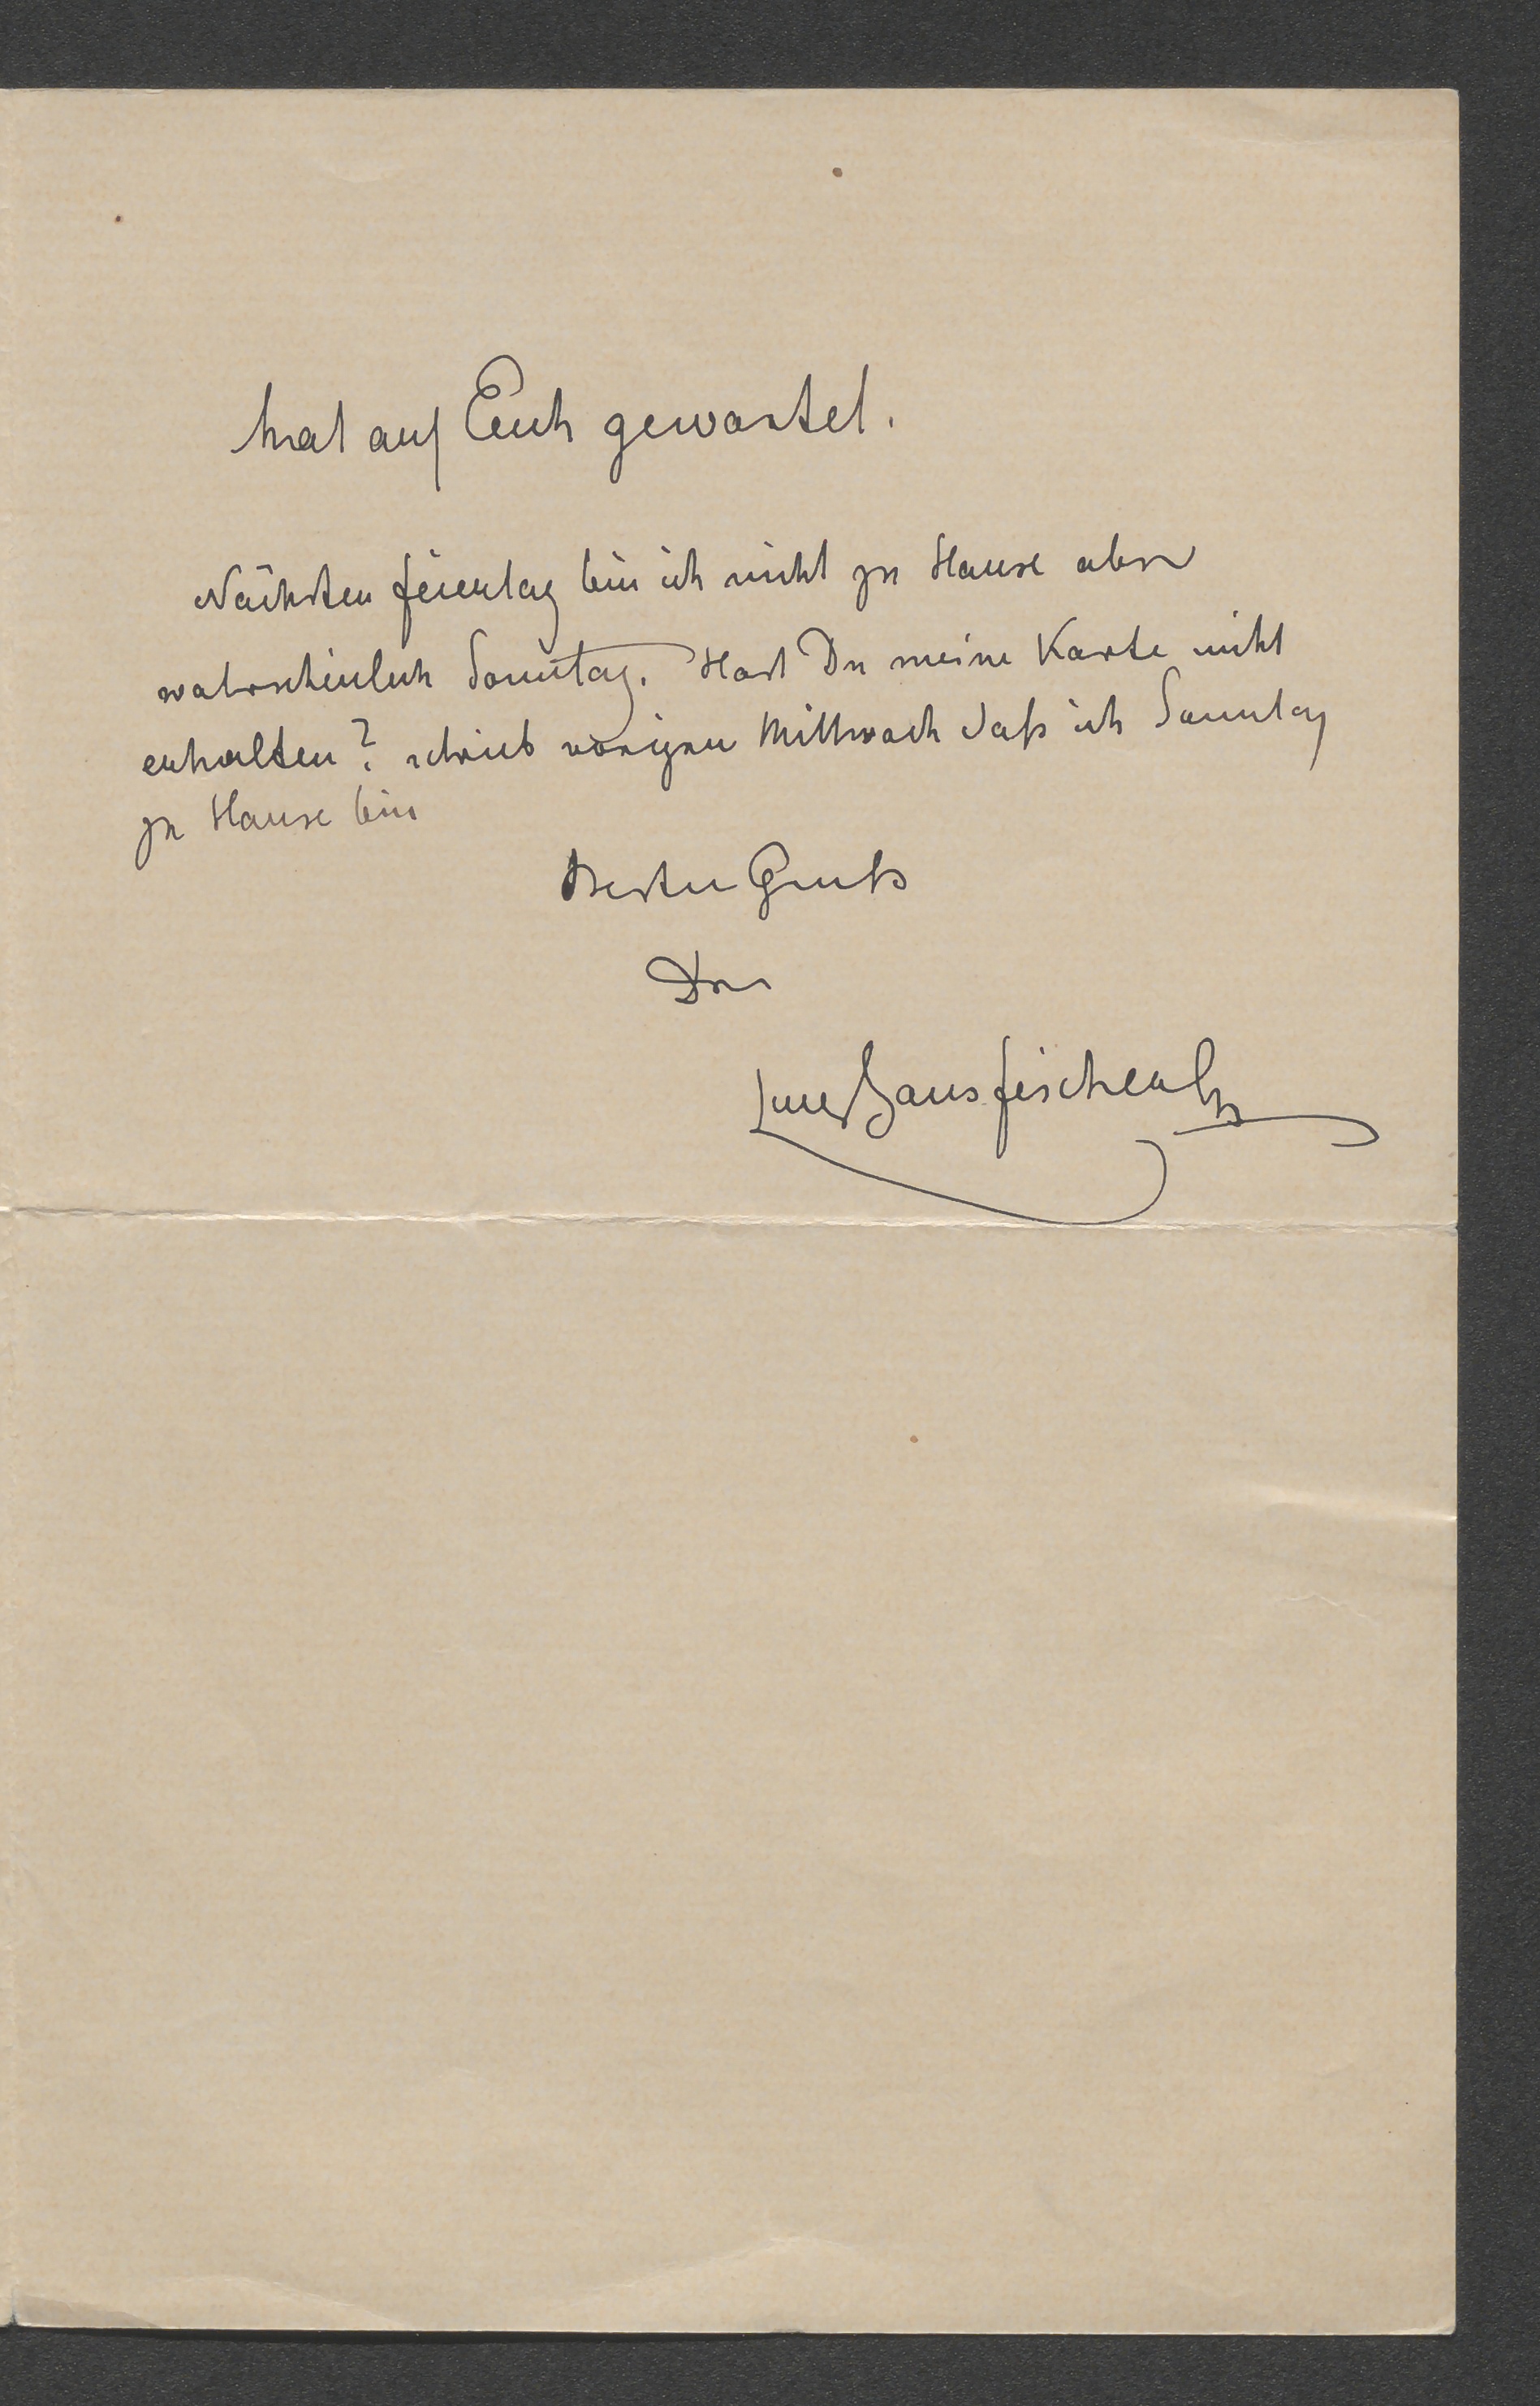 hat auf Euch gewartet.
Nächsten feiertag bin ich nicht zu Hause aber
wahrscheinlich Sonntag. Hast Du meine Karte nicht
erhalten? schrieb vorigen Mittwoch daß ich Sonntag
zu Hause bin
Besten Gruß
Dein
Hans fischer